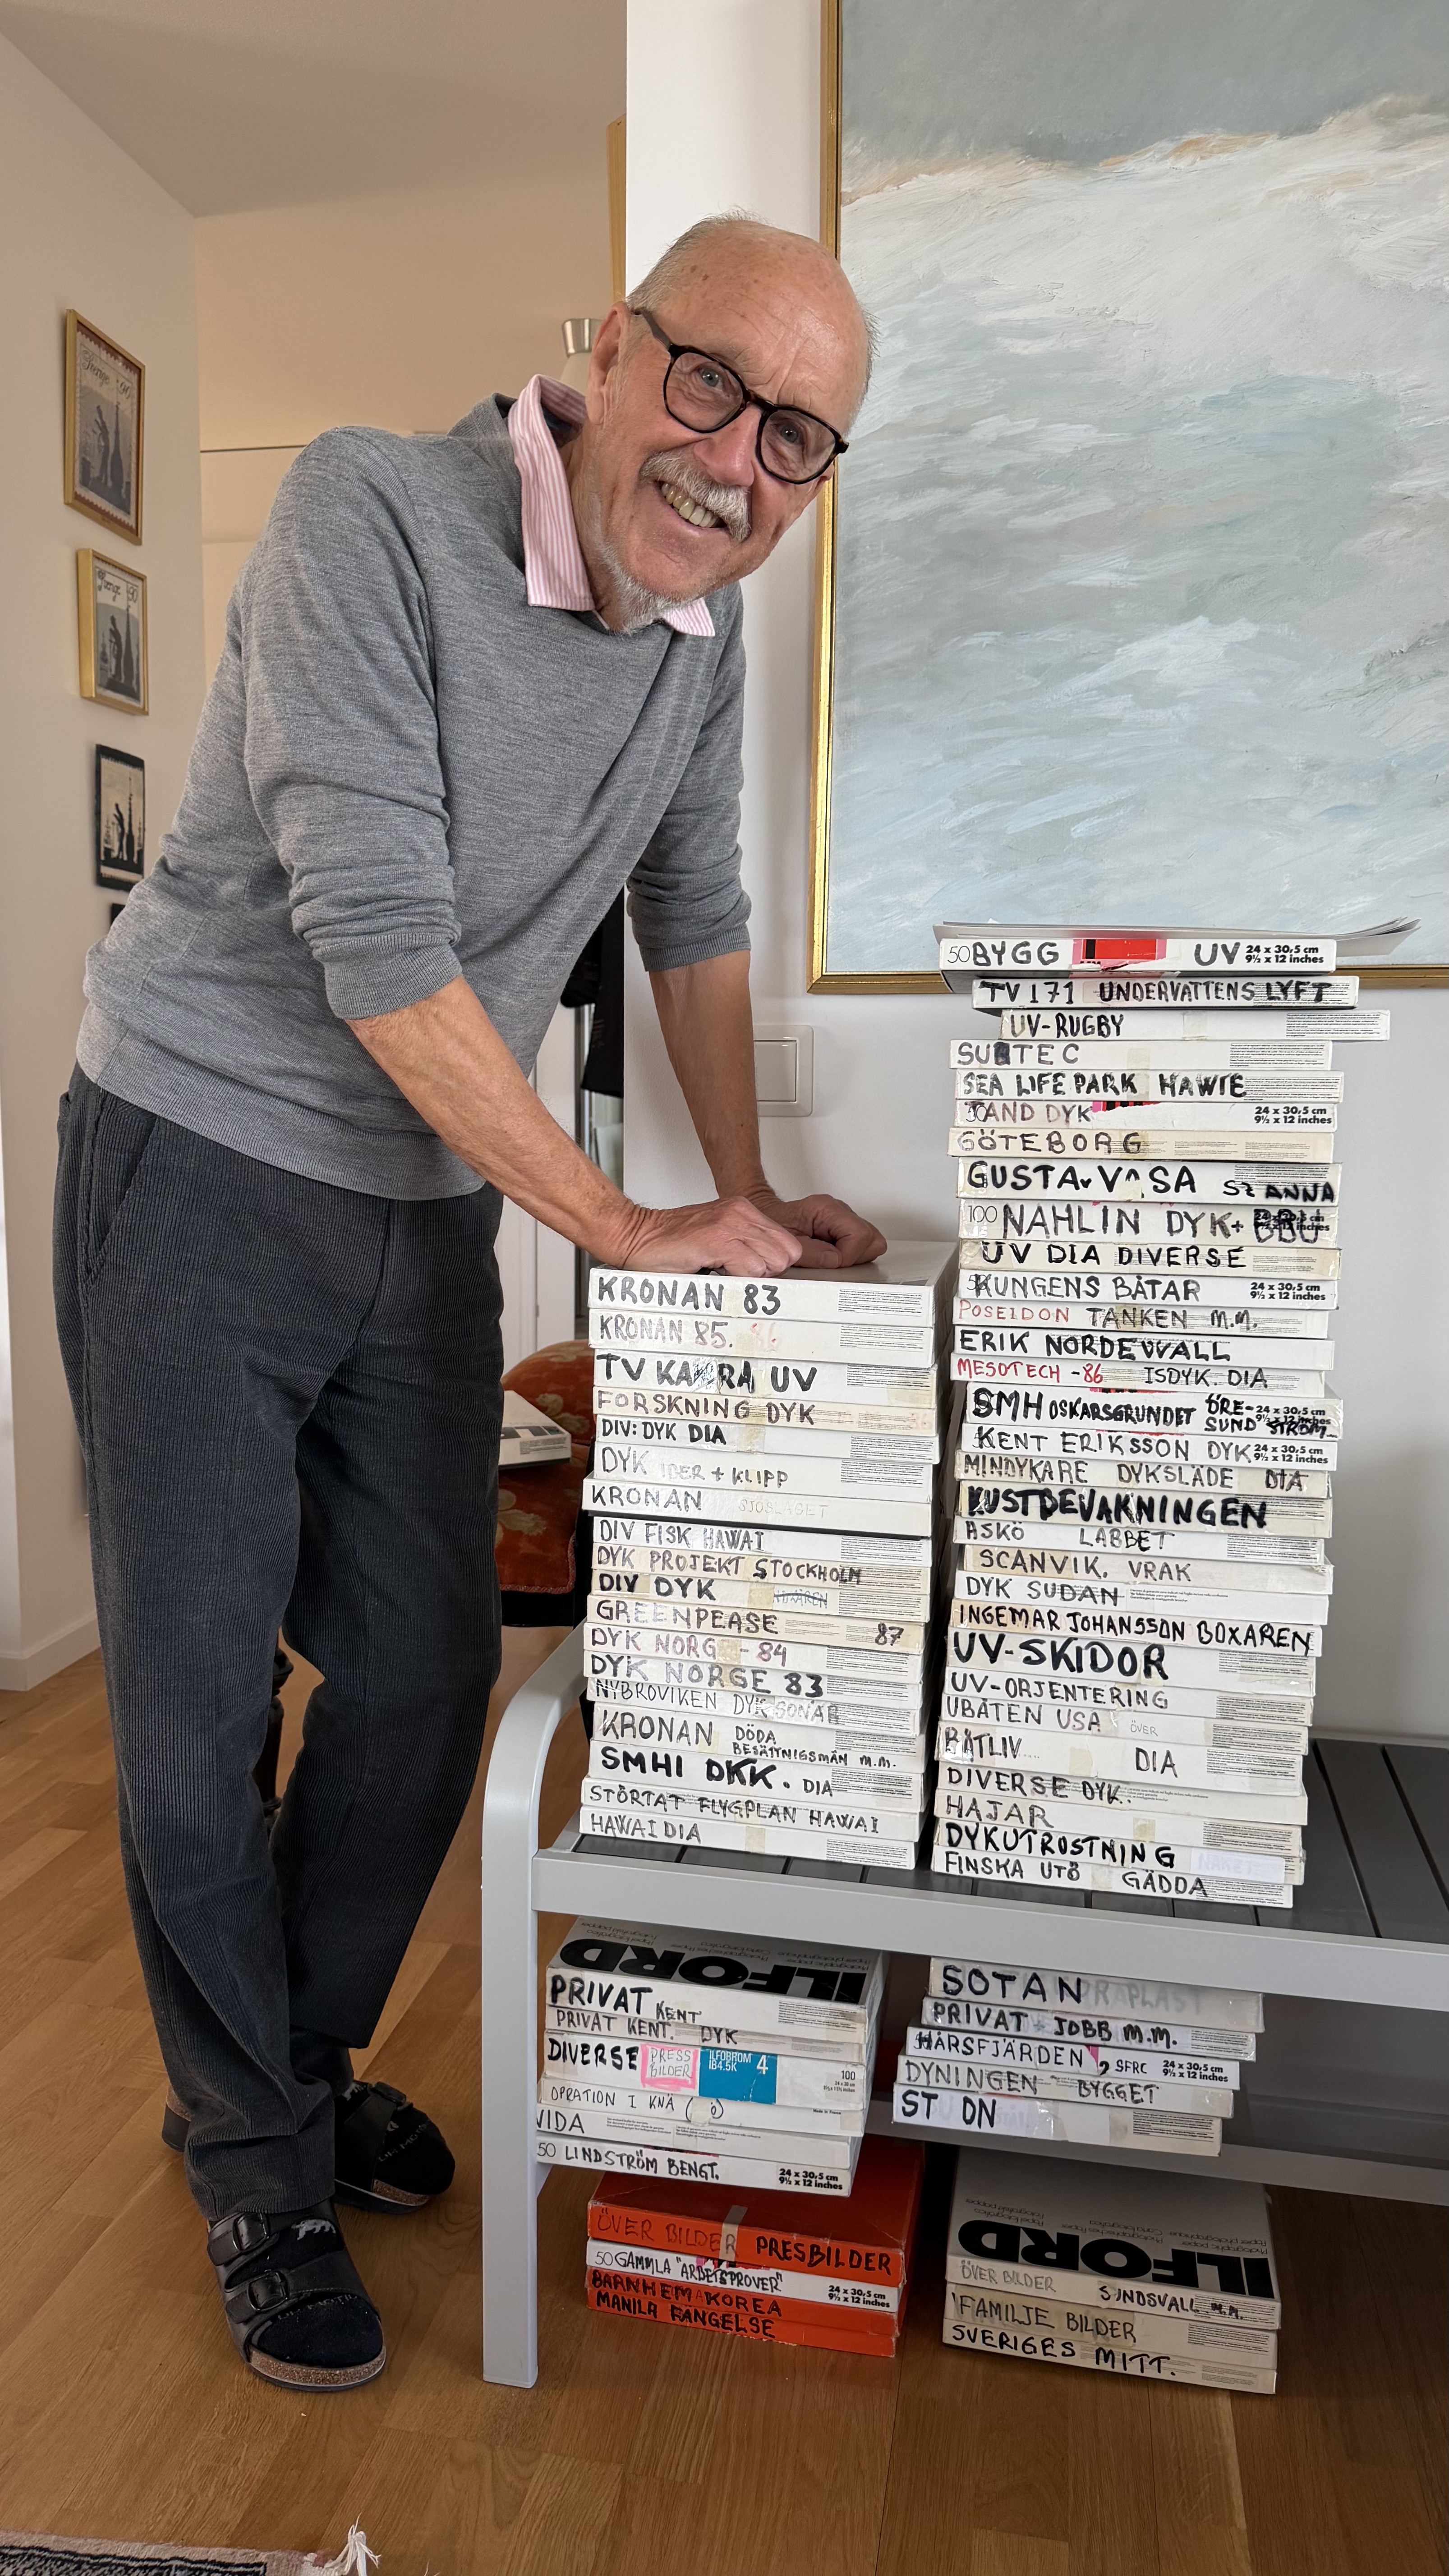 Sverige 90
Sverige 90
KRONAN 83
KRONAN 85. 86
TV KA RA UV
FORSKNING DYK
DIV: DYK DIA
DYK + KLIPP
KRONAN SJÖSLAGET
DIV FISK HAWAI
DYK PROJEKT STOCKHOLM
DIV DYK
GREENPEASE 87
DYK NORG - 84
DYK NORGE 83
NYBROVIKEN DYK SONAR
KRONAN DÖDA
BESÄTTNIGSMÄN M.M.
SMHI DKK. DIA
STÖRTAT FLYGPLAN HAWAI
HAWAI DIA
50 BYGG UV 24 x 30,5 cm
9½ x 12 inches
TV 171 UNDERVATTENS LYFT
UV-RUGBY
SUBTEC
SEA LIFE PARK HAWIE
SAND DYK 24 x 30,5 cm
9½ x 12 inches
GÖTEBORG
GUSTAV VASA ST ANNA
100 NAHLIN DYK+
UV DIA DIVERSE
KUNGENS BÅTAR 24 x 30,5 cm
9½ x 12 inches
POSEIDON TANKEN M.M.
ERIK NORDEWALL
MESOTECH -86 ISDYK. DIA
SMH OSKARSGRUNDET ÖRE-
SUND STRÖM 24 x 30,5 cm
KENT ERIKSSON DYK 24 x 30,5 cm
9½ x 12 inches
MINDYKARE DYKSLÄDE DIA
KUSTBEVAKNINGEN
ASKÖ LABBET
SCANVIK. VRAK
DYK SUDAN
INGEMAR JOHANSSON BOXAREN
UV-SKIDOR
UV-ORJENTERING
UBÅTEN USA ÖVER
BÅTLIV.... DIA
DIVERSE DYK.
HAJAR
DYKUTRUSTNING
FINSKA UTÖ GÄDDA
ILFORD
PRIVAT KENT
PRIVAT KENT. DYK
DIVERSE PRESS
BILDER ILFOBROM
IB4.5K 4 100
OPRATION I KNÄ (Ö)
VIDA
50 LINDSTRÖM BENGT. 24 x 30,5 cm
9½ x 12 inches
ÖVER BILDER PRESBILDER
50 GAMMLA "ARBETSPROVER" 24 x 30,5 cm
9½ x 12 inches
BARNHEM KOREA
MANILA FÄNGELSE
SOTAN
PRIVAT JOBB M.M.
HÅRSFJÄRDEN, SFRC 24 x 30,5 cm
9½ x 12 inches
DYNINGEN BYGGET
ST ON
ILFORD
ÖVER BILDER SUNDSVALL M.M.
FAMILJE BILDER
SVERIGES MITT.